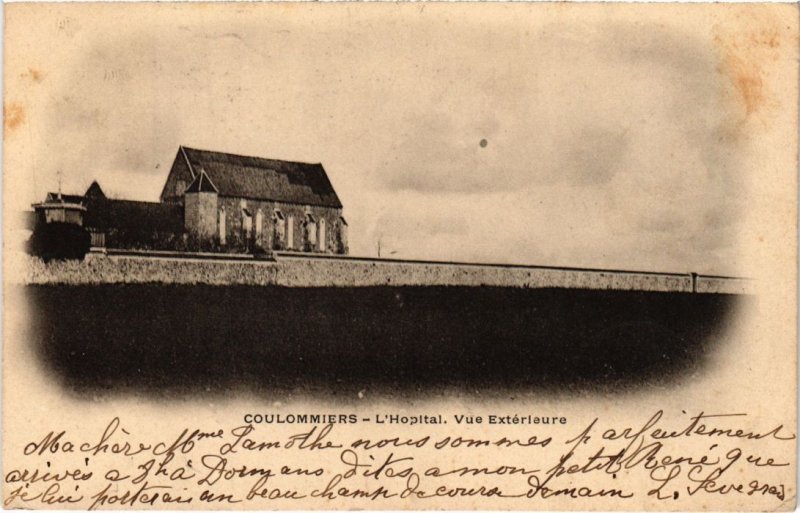 COULOMMIERS - L'Hopital. Vue Extérieure
Ma chère Mme Lamothe nous sommes parfaitement
arrivés a 8h à Dormans, dites a mon petit René que
je lui porterai un beau champ de course demain L.